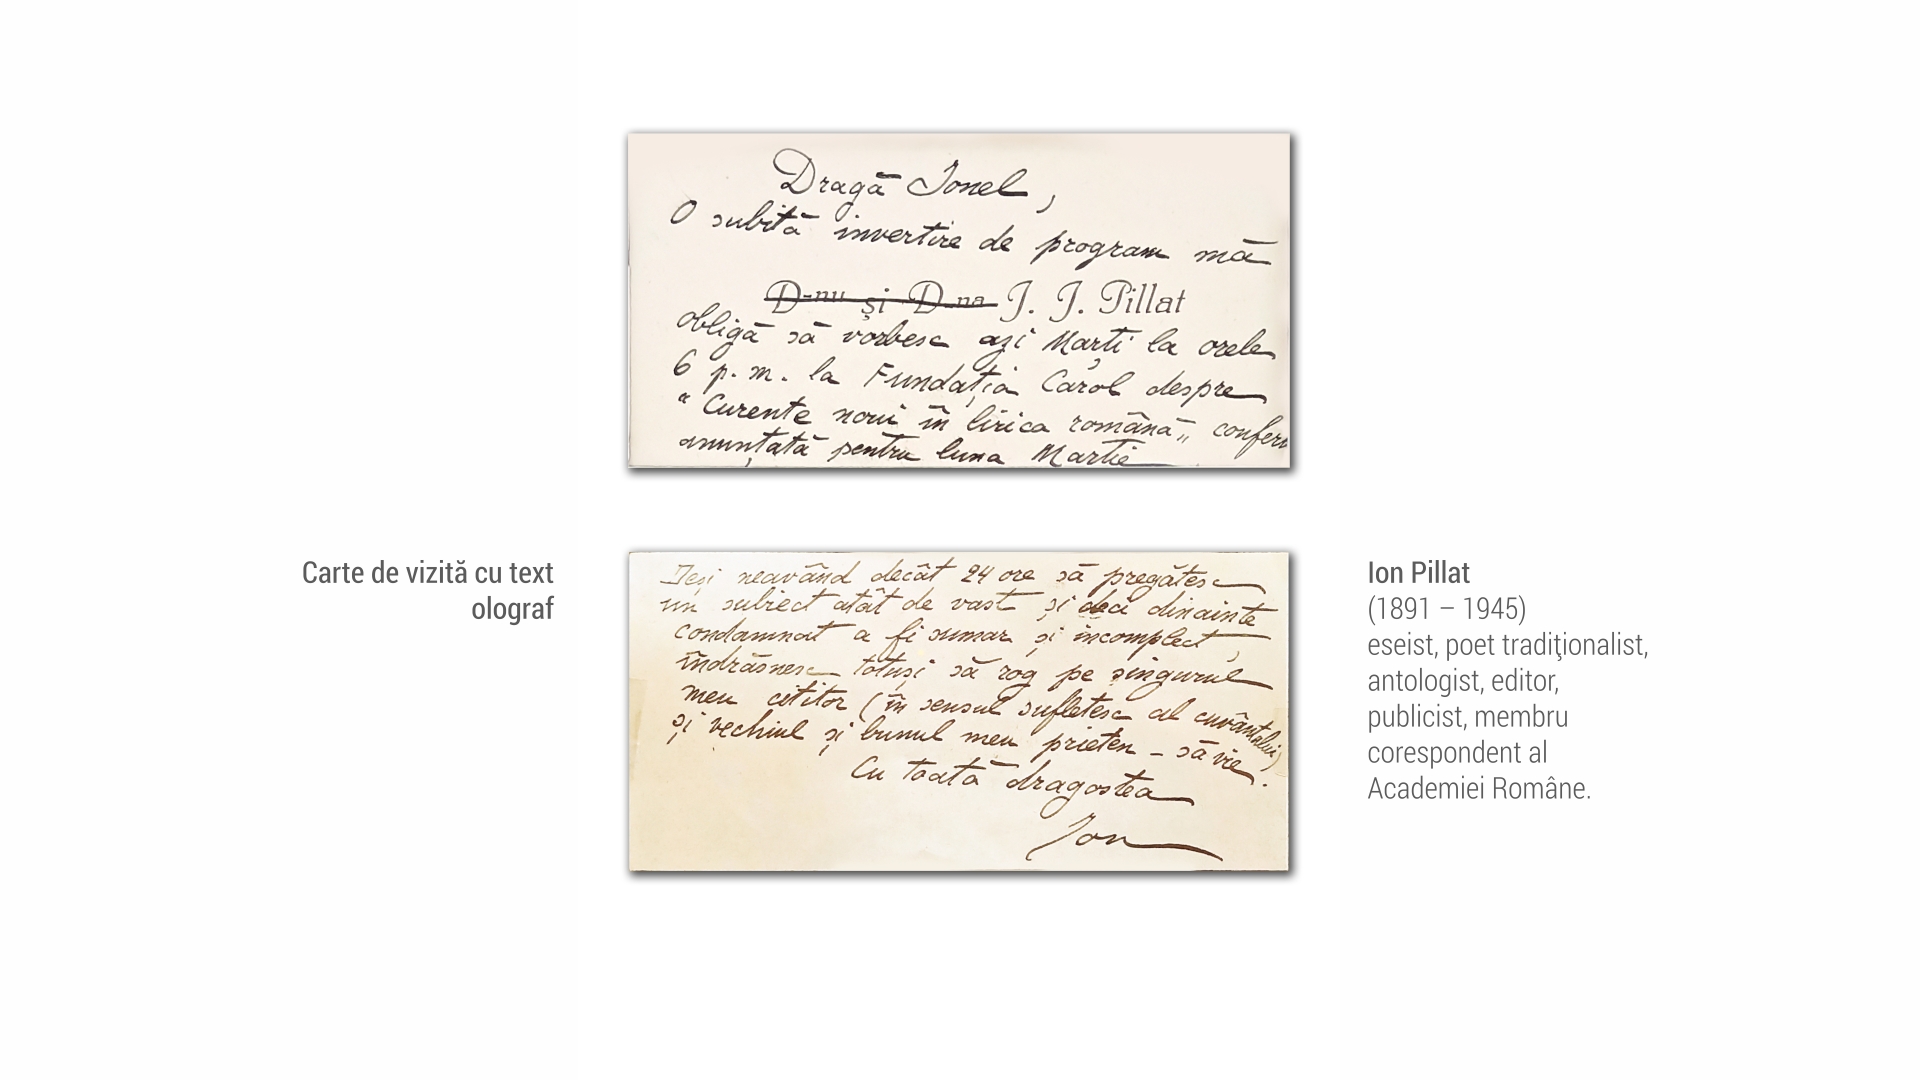 Dragă Ionel,
O subită invertire de program mă
D-nu și D-na J. J. Pillat
obligă să vorbesc azi Marți la orele
6 p.m. la Fundația Carol despre
"Curente noui în lirica română„ confer
anunțată pentru luna Martie
Carte de vizită cu text
olograf
Deși neavând decât 24 ore să pregătesc
un subiect atât de vast și deci dinainte
condamnat a fi sumar și incomplect,
îndrăsnesc totuși să rog pe singurul
meu cititor (în sensul sufletesc al cuvântului)
și vechiul și bunul meu prieten – să vie.
Cu toată dragostea
Ion
Ion Pillat
(1891 – 1945)
eseist, poet tradiţionalist,
antologist, editor,
publicist, membru
corespondent al
Academiei Române.